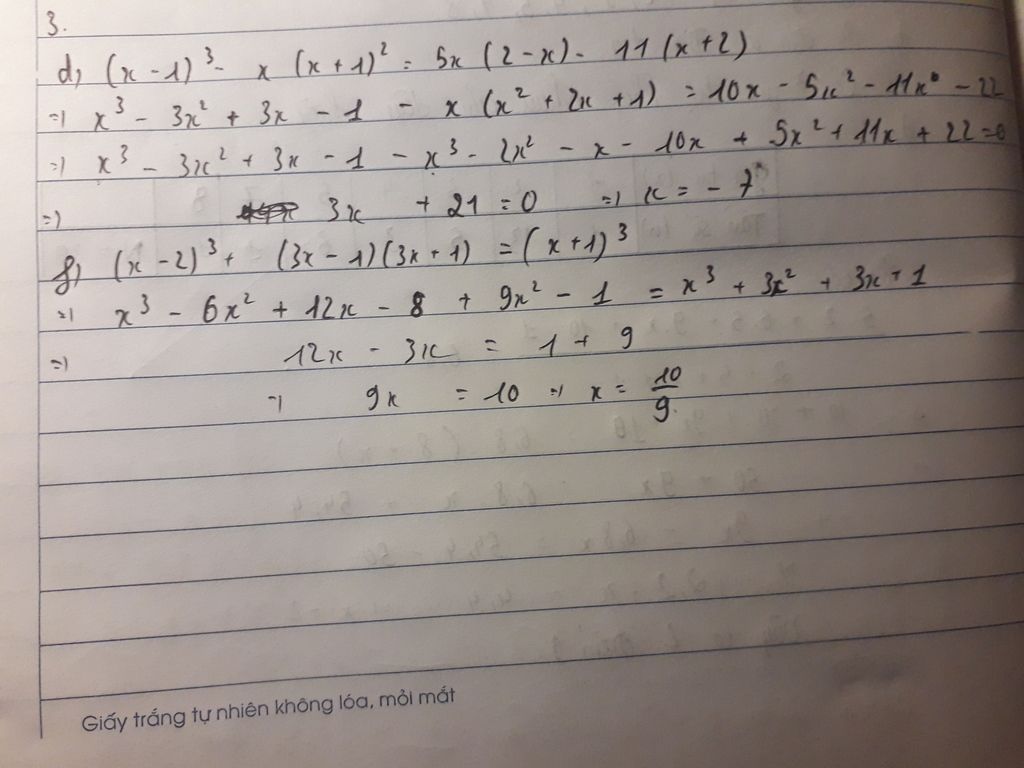 3.
d, (x - 1)³ - x (x + 1)² = 5x (2 - x) - 11 (x + 2)
=) x³ - 3x² + 3x - 1 - x (x² + 2x + 1) = 10x - 5x² - 11x - 22
=) x³ - 3x² + 3x - 1 - x³ - 2x² - x - 10x + 5x² + 11x + 22 = 0
=) 3x + 21 = 0 =) x = - 7
f, (x - 2)³ + (3x - 1)(3x + 1) = (x + 1)³
=) x³ - 6x² + 12x - 8 + 9x² - 1 = x³ + 3x² + 3x + 1
=) 12x - 3x = 1 + 9
=) 9x = 10 =) x = 10/9
Giấy trắng tự nhiên không lóa, mỏi mắt